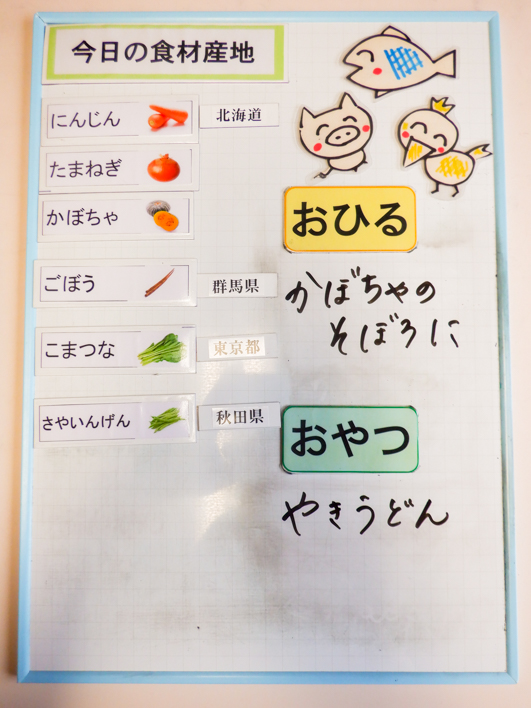 今日の食材産地
にんじん 北海道
たまねぎ
かぼちゃ
ごぼう 群馬県
こまつな 東京都
さやいんげん 秋田県
おひる
かぼちゃの
そぼろに
おやつ
やきうどん